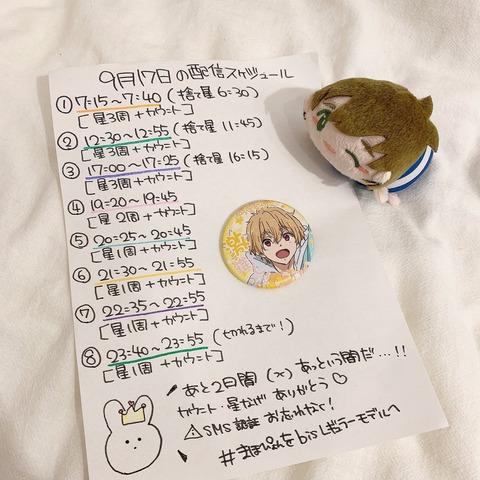 9月17日の配信スケジュール
① 7:15～7:40 (捨て星 6:30)
[星3周 + カウント]
② 12:30～12:55 (捨て星 11:45)
[星3周 + カウント]
③ 17:00～17:25 (捨て星 16:15)
[星3周 + カウント]
④ 19:20～19:45
[星2周 + カウント]
⑤ 20:25～20:45
[星1周 + カウント]
⑥ 21:30～21:55
[星1周 + カウント]
⑦ 22:35～22:55
[星1周 + カウント]
⑧ 23:40～23:55 (せかれるまで!)
[星1周 + カウント]
あと2日間 (×) あっという間だ…!!
カウント・星なげ ありがとう♡
⚠SMS認証 お忘れなく!
#まほぴょんをbisレギュラーモデルへ